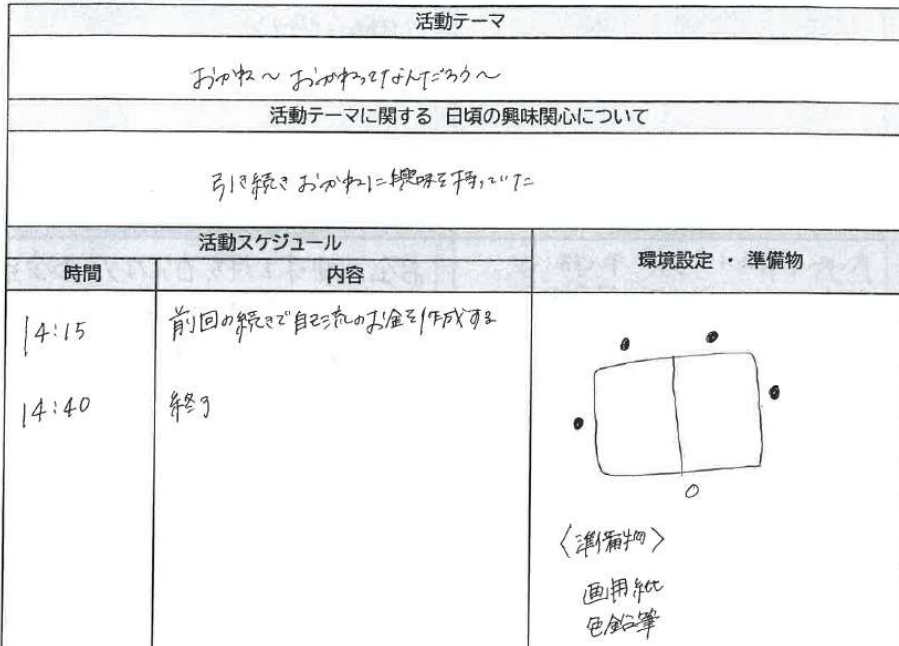 活動テーマ
おかね～おかねってなんだろう～
活動テーマに関する 日頃の興味関心について
引き続きおかねに興味を持っていた
活動スケジュール
環境設定 ・ 準備物
時間
内容
14:15
前回の続きで自己流のお金を作成する
14:40
終了
〈準備物〉
画用紙
色鉛筆